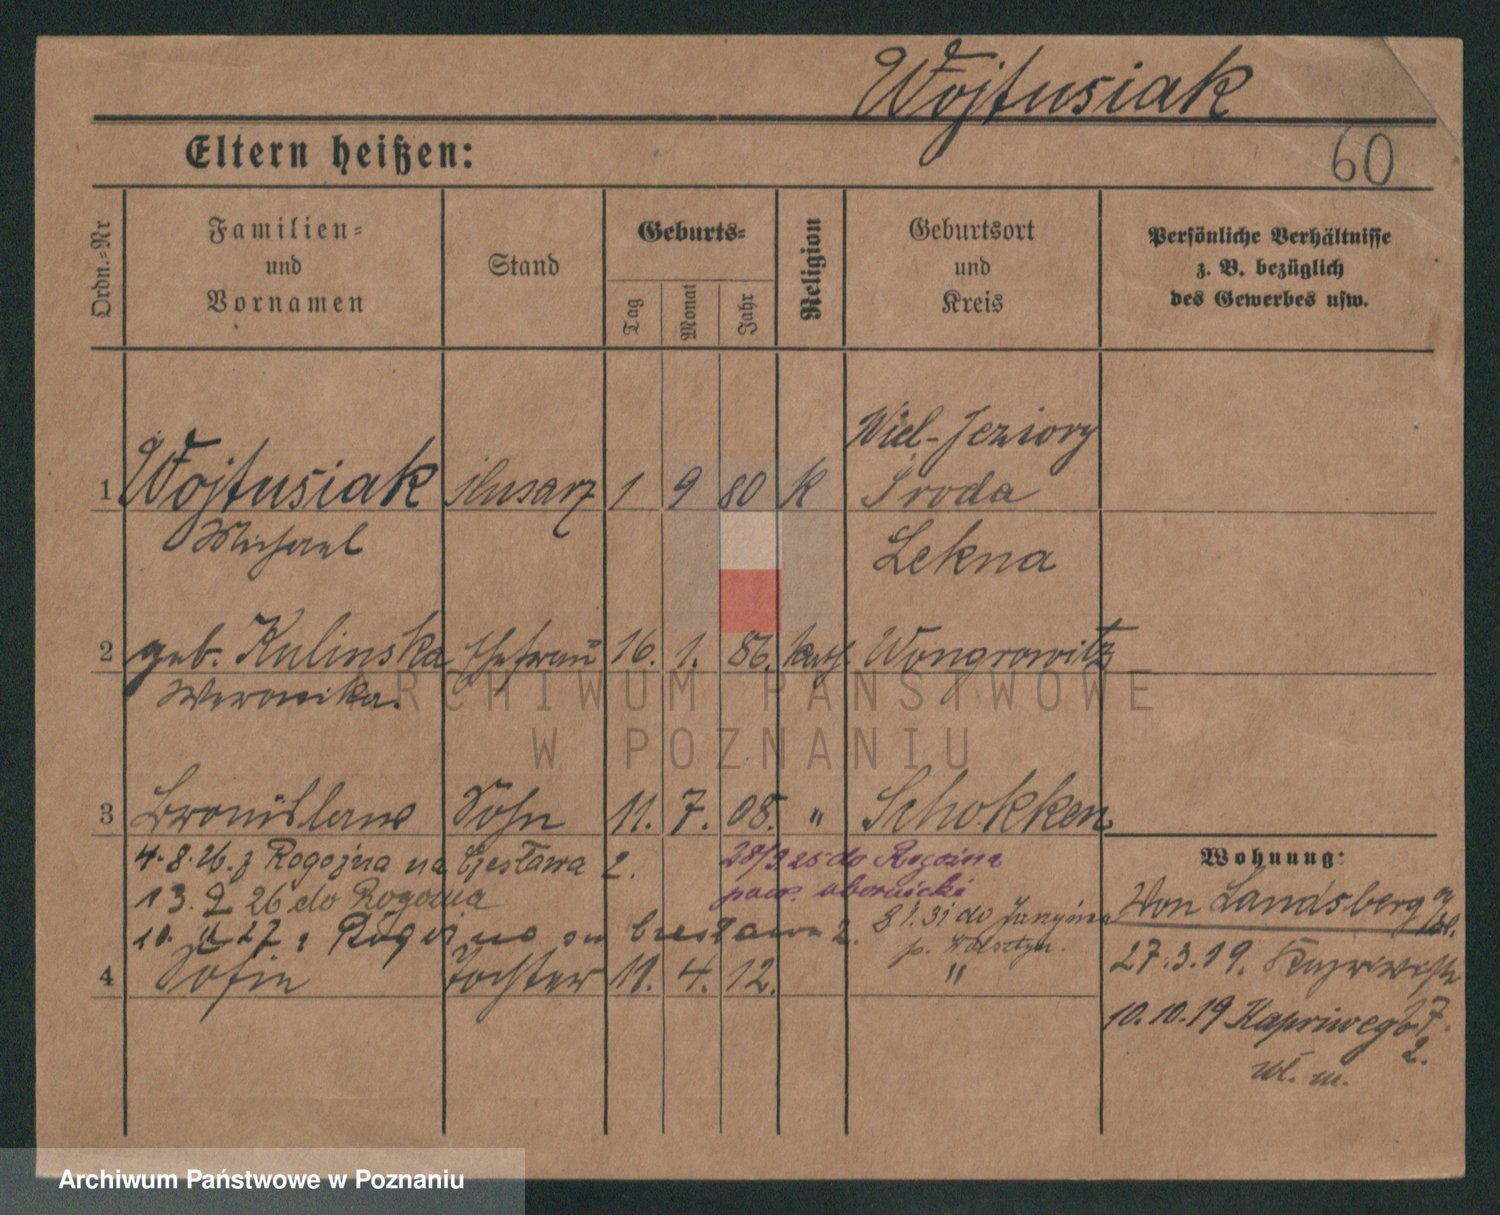 Wojtusiak
Eltern heißen:
60
Ordn.-Nr
Familien-
und
Vornamen
Stand
Geburts-
Tag
Monat
Jahr
Religion
Geburtsort
und
Kreis
Persönliche Verhältnisse
z. B. bezüglich
des Gewerbes usw.
Wiel-Jeziory
1 Wojtusiak ślusarz 1 9 80 K Środa
Michael
Lekna
2 geb. Kulinska Ehefrau 16. 1. 86. kath. Wongrowitz
Weronika.
3 Bronislaw Sohn 11. 7. 08. " Schokken
4.8.26. z Rogoźna na Czesława 2.
28/9.25 do Rogoźna
13. 9 26 do Rogoźna
pow. obornicki
10. 11 27 z Rogoźna na Czesława 2.
8 1. 31 do
p. Wolsztyn.
4 Sofie Tochter 11. 4. 12. "
Wohnung:
Von Landsberg
27.3.19.
10.10.19 7.
2.
Wł. m.
ARCHIWUM PAŃSTWOWE
W POZNANIU
Archiwum Państwowe w Poznaniu